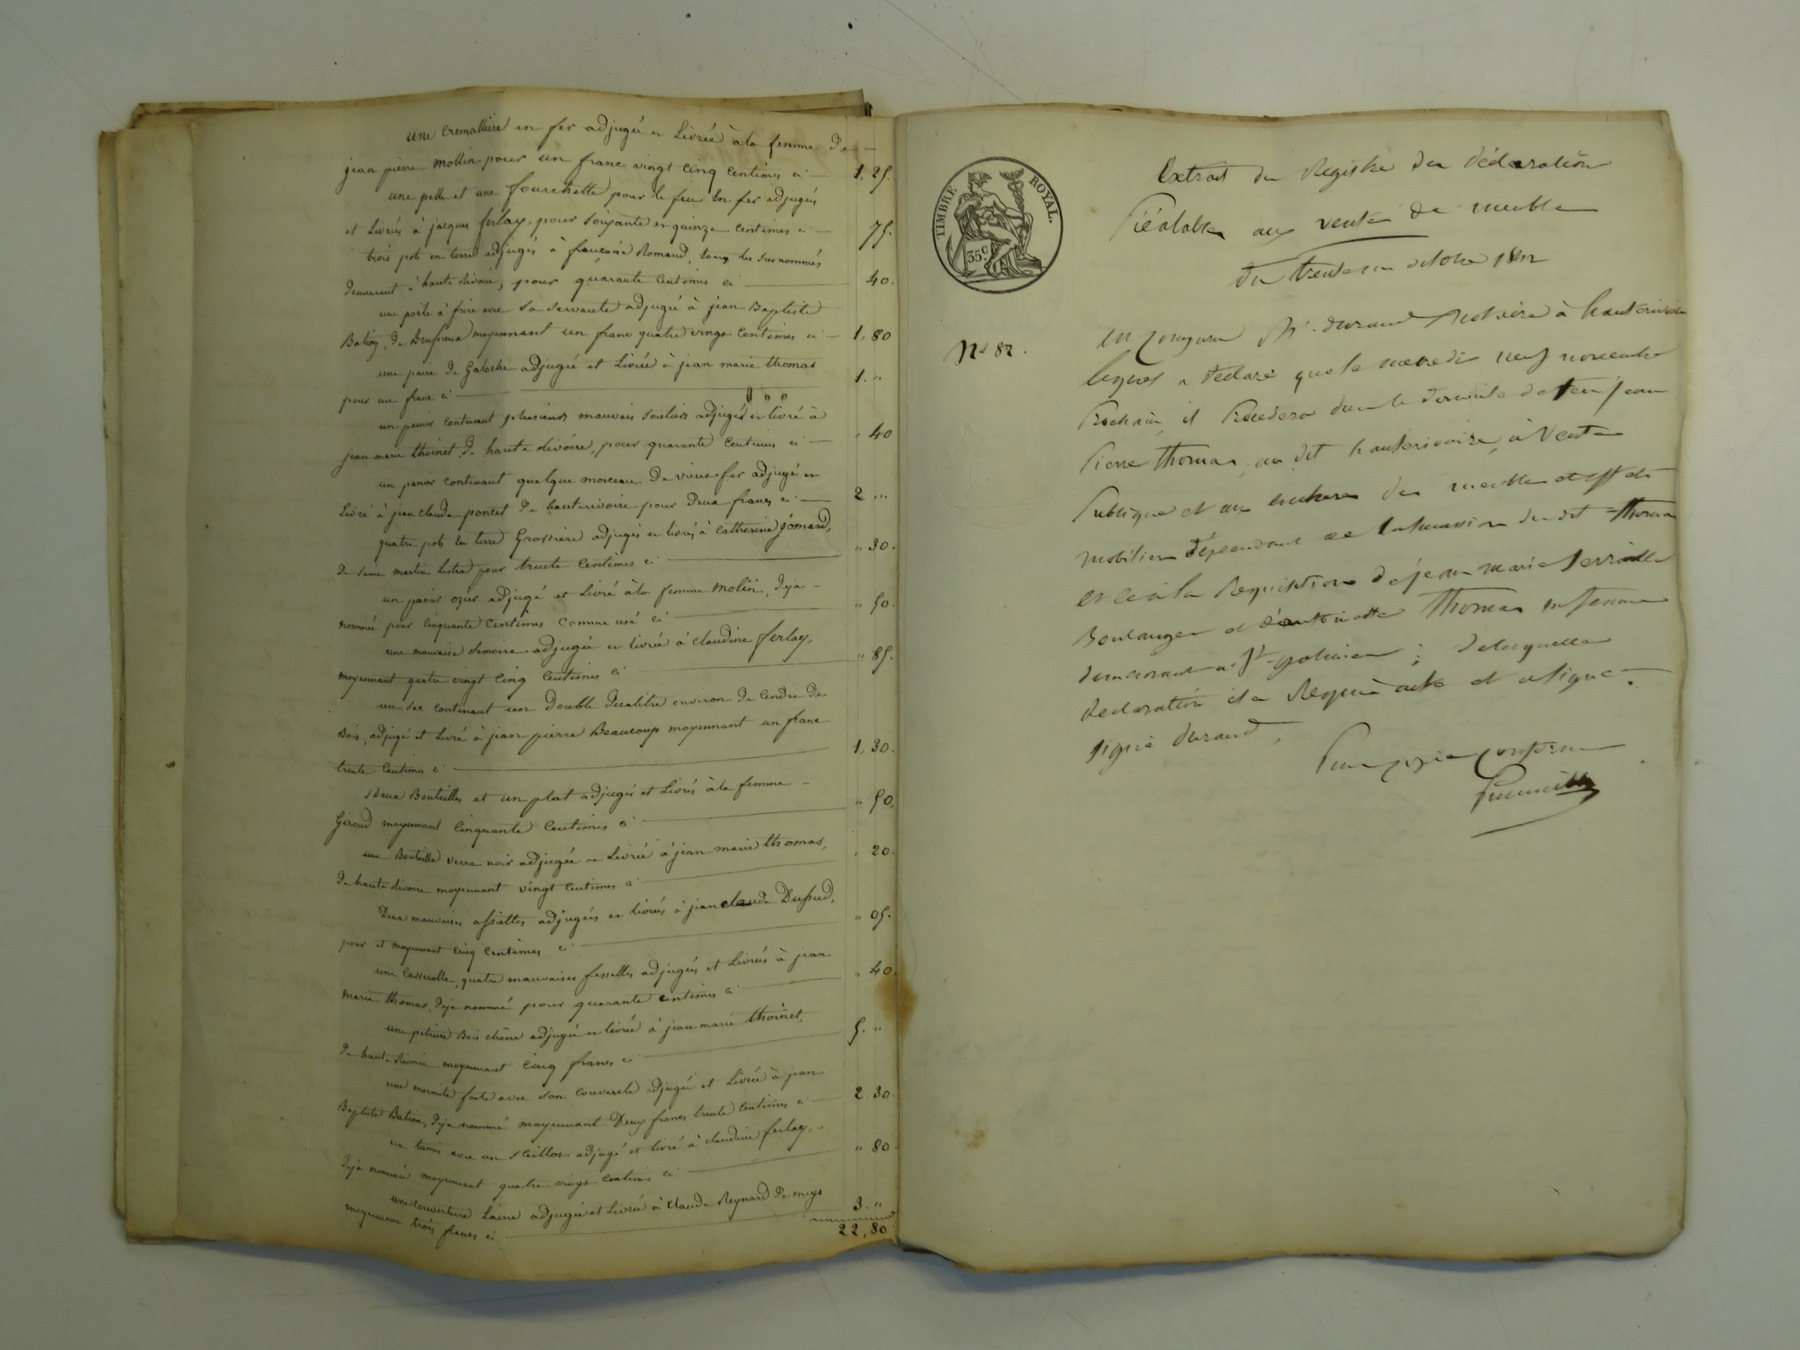 une cremallière en fer adjugée et Livrée à la femme de
jean pierre mollin pour un franc vingt cinq centimes ci 1,25.
une pelle et une fourchette pour le feu en fer adjugés
et Livrés à jacques ferlay, pour soixante et quinze centimes ci 75.
trois pots en terre adjugés à françoise Romand, tous les susnommés
demeurant à haute Rivoire, pour quarante centimes ci 40.
une poële à frire avec sa servante adjugée à jean Baptiste
Bation, de Brussieux moyennant un franc quatre vingt centimes ci 1,80
une paire de Galoche adjugée et Livrée à jean marie thomas
pour un franc ci 1. "
un panier contenant plusieurs mauvais souliers adjugés et livré à
jean marie thoinet de haute Rivoire, pour quarante centimes ci " 40
un panier contenant quelque morceau de vieux fer adjugé et
Livré à jean claude poncet de hauterivoire pour Deux francs ci 2 "
quatre pots en terre Grossière adjugés et livrés à Catherine gomard,
de saint martin Lestra pour trente centimes ci " 30.
un panier ozier adjugé et Livré à la femme molin, déja
nommée pour cinquante centimes comme usé ci " 50.
une mauvaise adjugée et livrée à claudine ferlay,
moyennant quatre vingt cinq centimes ci " 85.
un sac contenant un Double décalitre environ de cendre de
Bois, adjugé et Livré à jean pierre Beaucoup moyennant un franc
trente centimes ci 1,30.
Deux Bouteilles et un plat adjugés et Livrés à la femme
Giroud moyennant cinquante centimes ci " 50.
une Bouteille verre noir adjugée et Livrée à jean marie thomas,
de haute Rivoire moyennant vingt centimes ci " 20.
Deux mauvaises assiettes adjugées et livrées à jean claude Dussud,
pour et moyennant cinq centimes ci " 05.
une Casserolle, quatre mauvaises fesselles adjugées et Livrées à jean
marie thomas, déja nommé pour quarante centimes ci " 40.
une pétrière Bois chêne adjugée et livrée à jean marie thoinet,
de haute Rivoire moyennant cinq francs ci 5. "
une marmite fonte avec son couvercle adjugée et Livrée à jean
Baptiste Bation, déja nommé moyennant Deux francs trente centimes ci 2.30.
un tamis avec un adjugé et livré à claudine ferlay,
déja nommée moyennant quatre vingt centimes ci " 80
une couverture Laine adjugée et Livrée à claude Reynard de meys
moyennant trois francs ci 3. "
22,80
TIMBRE ROYAL.
35c.
Extrait du Registre des déclarations
Préalables aux ventes de meubles
Du trente un octobre 1842
No 82.
Est comparu Me. durand Notaire à hauterivoire
lequel a déclaré que le mercredi neuf novembre
Prochain, il Procédera dans le domicile de feu jean
Pierre thomas, au dit hauterivoire, à Vente
Publique et aux enchères des meubles et effets
mobiliers dépendant de la succession du dit thomas
et ce à la Requisition de jean marie
Boulanger et d'antoinette thomas sa femme
demeurant à St. galmier ; de laquelle
déclaration il a Requis acte et a signé.
signé durand,
Pour copie conforme